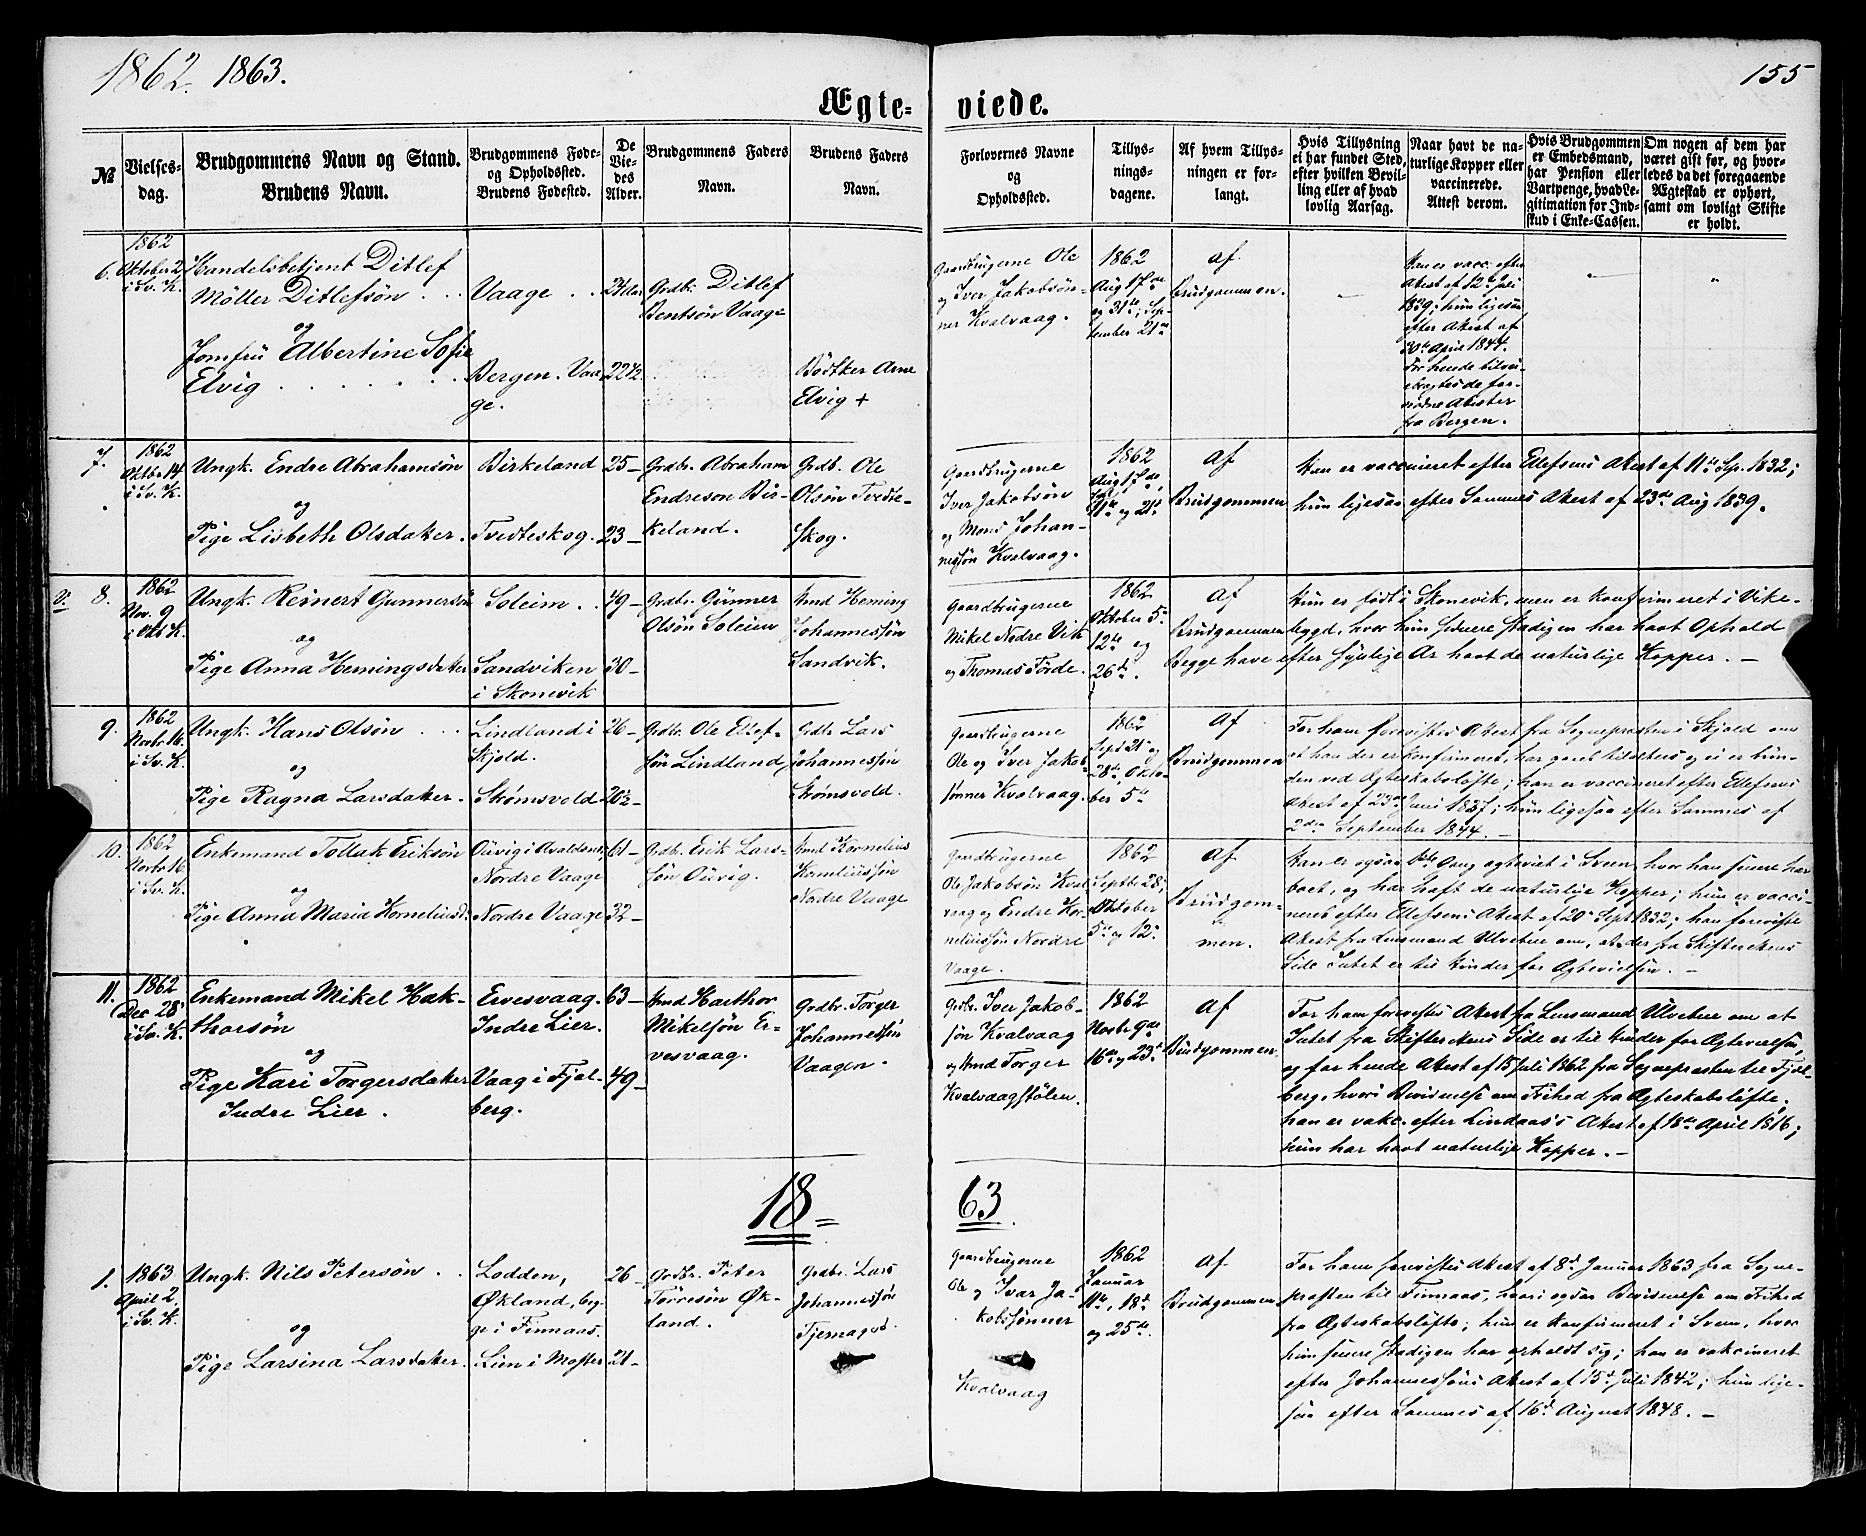 1862. 1863.
155
Ægte= viede.
№
Vielses-
dag.
Brudgommens Navn og Stand.
Brudens Navn.
Brudgommens Føde-
og Opholdssted.
Brudens Fødested.
De
Vie-
des
Alder.
Brudgommens Faders
Navn.
Brudens Faders
Navn.
Forlovernes Navne
og
Opholdssted.
Tillys-
nings-
dagene.
Af hvem Tillys-
ningen er for-
langt.
Hvis Tillysning
ei har fundet Sted,
efter hvilken Bevil-
ling eller af hvad
lovlig Aarsag.
Naar havt de na-
turlige Kopper eller
vaccinerede.
Attest derom.
Hvis Brudgommen
er Embedsmand,
har Pension eller
Vartpenge, hvad Le-
gitimation for Ind-
skud i Enke-Cassen.
Om nogen af dem har
været gift før, og hvor-
ledes da det foregaaende
Ægteskab er ophørt,
samt om lovligt Skifte
er holdt.
6.
1862
Oktober 2
i Sv. K.
Handelsbetjent Ditlef
Möller Ditlefsön . .
og
Jomfru Albertine Sofie
Elvig . . . . . . .
Vaage . .
Bergen. Vaa-
ge.
24 Aar
22 1/2
Grdbr. Ditlef
Bentsön Vaage
Bödtker Arne
Elvig +
Gaardbrugerne Ole
og Iver Jakobsön-
ner Kvalvaag.
1862
Aug 17de
og 31te; Sep-
tember 21de
af
Brudgommen.
Han er vacc. efter
Attest af 12te Juli
1839; hun ligesaa
efter Attest af
30te April 1844.
For hende
de for-
Attester
fra Bergen.
7.
1862
Oktbr 14
i Sv. K.
Ungk. Endre Abrahamsön
og
Pige Lisbeth Olsdatter.
Birkeland
Tvedteskog.
25 –
23 –
Grdbr. Abraham
Endreson Bir-
keland.
Grdb. Ole
Olsön Tvedte-
skog.
Gaardbrugerne
Iver Jakobsön
og Mons Johan-
nessön Kvalvaag.
1862
Aug 17de,
31te og 21de
af
Brudgommen
Han er vaccineret efter Ellefsens Attest af 11te Sep. 1832;
hun ligesaa efter Sammes Attest af 23de Aug 1839.
V.
8.
1862
Nov. 9
i K.
Ungk. Reinert Gunnersön
og
Pige Anna Hemingsdatter
Soleim . .
Sandviken
i Skonevik
49 –
30 –
Grdbr. Gunner
Olsön Soleim
Hmd Heming
Johannessön
Sandvik.
Gaardbrugerne
Mikel Nodre Vik
og Thomas Förde.
1862
Oktober 5te
12te og
26de.
af
Brudgommen
Hun er födt i Skonevik, men er konfirmeret i Vike-
bygd, hvor hun senere stadigen har havt Ophold
Begge have efter synlige Ar havt de naturlige Kopper. –
9.
1862
Novbr 16
i Sv. K.
Ungk. Hans Olsön . . .
og
Pige Ragna Larsdatter.
Lindland i
Skjold.
Strømsvold
26 –
20 1/2 –
Grdbr. Ole Ellef-
sön Lindland
Grdbr Lars
Johannessön
Strømsvold.
Gaardbrugerne
Ole og Iver Jakob-
sönner Kvalvaag.
1862
Sept 21de og
28de, Okto-
ber 5te
af
Brudgommen
For ham forevistes Attest fra Sognepresten i Skjold om
at han der er konfirmeret, har gaaet tilalters og ei er bun-
den ved Ægteskabslöfte; han er vaccineret efter Ellefsens
Attest af 23de Juni 1837; hun ligesaa efter Sammes af
2den September 1844. –
10.
1862
Novbr 16
i Sv. K.
Enkemand Tollak Eriksön
og
Pige Anna Maria Kornelius
Öuvig i
Nordre Vaage
Nordre Vaage
61 –
32 –
Grdb. Erik Lars-
sön Öuvig.
Hmd Kornelius
Korneliussön
Nordre Vaage
Gaardbrugerne
Ole Jakobsön Kval-
vaag og Endre Kor-
neliussön Nordre
Vaage.
1862
Septbr 28,
Oktober
5te og 12te
af
Brudgom-
men.
Han er ogsaa 1ste Gang ægteviet i Sveen, hvor han senere har
boet, og har haft de naturlige Kopper; hun er vacci-
neret efter Ellefsens Attest af 20de Sept 1832; han foreviste
Attest fra Lensmand Ulvetun om, at der fra Skifterettens
Side Intet er til Hinder for Ægtevielsen. –
11.
1862
Dec 28
i Sv. K.
Enkemand Mikel Hak-
thorsön
og
Pige Kari Torgersdatter
Indre Lier.
Ervesvaag.
Indre Lier.
Vaag i Fjel-
berg.
63 –
49 –
Hmd Hacthor
Mikelsön Er-
vesvaag.
Grdbr. Torger
Johannessön
Vaagen.
Grdbr. Iver Jakob-
sön Kvalvaag
og Hmd Torger
Kvalvaagstölen.
1862
Novbr 9de
16de og 23de
af
Brudgommen
For ham forevistes Attest fra Lensmand Ulvetun om at
Intet fra Skifterettens Side er til Hinder for Ægtevielsen,
og for hende Attest af 15 Juli 1862 fra Sognepresten til Fjel-
berg, hvori Bevidnelse om Frihed fra Ægteskabslöfte;
han er vakc. efter Lindaas's Attest af 18de April 1816;
hun har havt naturlige Kopper. –
18= 63.
1.
1863
April 2
i Sv. K.
Ungk. Nils Petersön . .
og
Pige Larsina Larsdatter.
Lodden,
Økland, beg-
ge i Finnaas.
Lien i Moster
26 –
21 –
Grdbr. Peter
Törresön Øk-
land.
Grdbr. Lars
Johannessön
Tjernagel.
Gaardbrugerne
Ole og Ivar Ja-
kobssönner
Kvalvaag
1862
Januar
11te, 18de
og 25de.
af
Brudgommen
For ham forevistes Attest af 8de Januar 1863 fra Sogne-
præsten til Finnaas, hvori ogsaa Bevidnelse om Frihed
fra Ægteskabslöfte; hun er konfirmeret i Sveen, hvor
hun senere stadigen har opholdt sig; han er vakcineret
efter Johannessöns Attest af 15de Juli 1842; hun lige-
saa efter Sammes af 16de August 1848. –